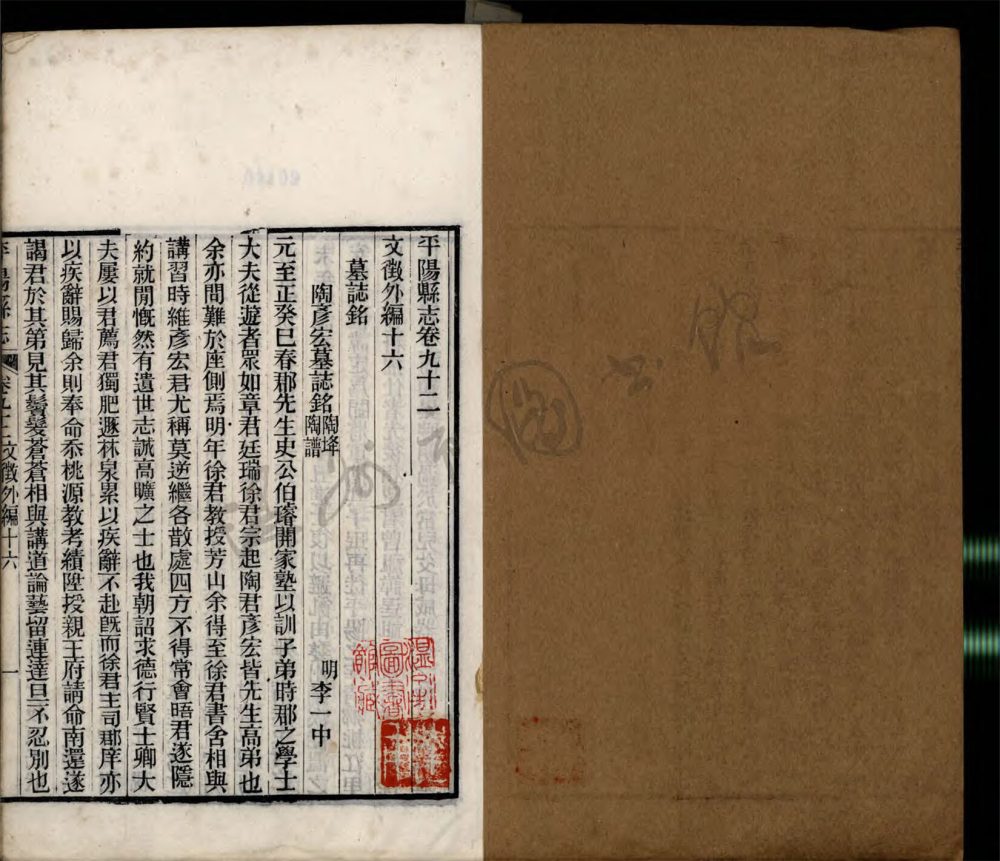 平陽縣志卷九十二
文徵外編十六
墓誌銘
陶彥宏墓誌銘陶譜陶埄
明李一中
元至正癸巳春郡先生史公伯璿開家塾以訓子弟時郡之學士
大夫從遊者眾如章君廷瑞徐君宗起陶君彥宏皆先生高弟也
余亦問難於座側焉明年徐君教授芳山余得至徐君書舍相與
講習時維彥宏君尤稱莫逆繼各散處四方不得常會晤君遂隱
約就閒慨然有遺世志誠高曠之士也我朝詔求德行賢士卿大
夫屢以君薦君獨肥遯林泉累以疾辭不赴既而徐君主司郡庠亦
以疾辭賜歸余則奉命忝桃源教考績陞授親王府請命南還遂
謁君於其第見其鬢髮蒼蒼相與講道論藝留連達旦不忍別也
平陽縣志
卷九十二文徵外編十六
一
溫州圖書館藏